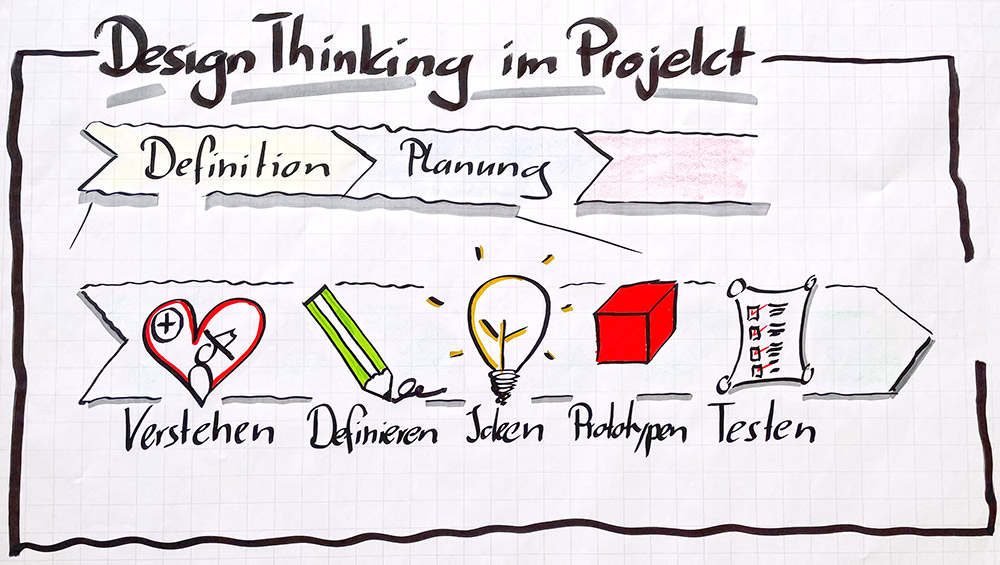 Design Thinking im Projekt
Definition Planung
Verstehen Definieren Ideen Prototypen Testen